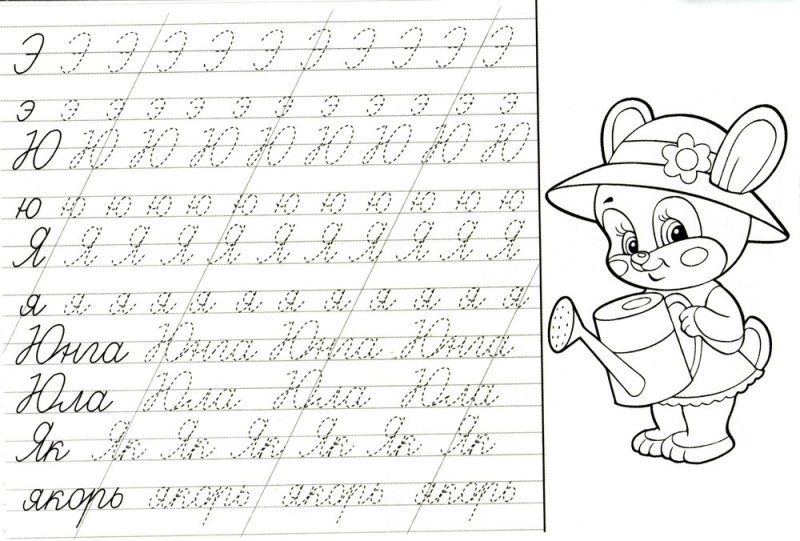 Э Э Э Э Э Э Э Э Э Э Э
э э э э э э э э э э э э
Ю Ю Ю Ю Ю Ю Ю Ю Ю
ю ю ю ю ю ю ю ю ю ю ю ю
Я Я Я Я Я Я Я Я Я Я Я
я я я я я я я я я я я я
Юнга Юнга Юнга Юнга
Юла Юла Юла Юла
Як Як Як Як Як Як Як
якорь якорь якорь якорь